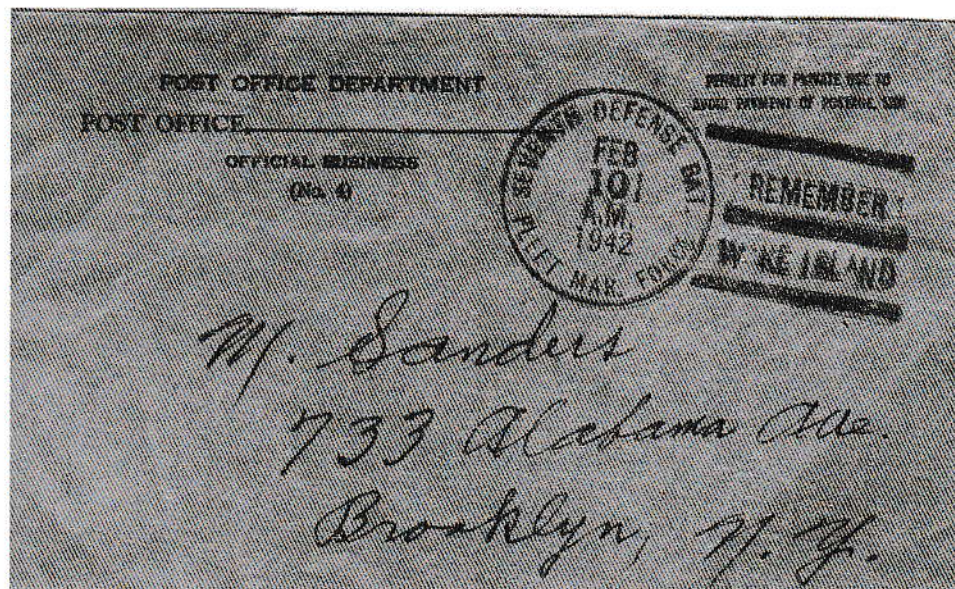 POST OFFICE DEPARTMENT
POST OFFICE
OFFICIAL BUSINESS
(No. 4)
PENALTY FOR PRIVATE USE TO
AVOID PAYMENT OF POSTAGE, $300
SEVENTH DEFENSE BAT.
FEB
10
A.M.
1942
FLEET MAR. FORCE
REMEMBER
WAKE ISLAND
M. Sanders
733 Alabama Ave.
Brooklyn, N. Y.